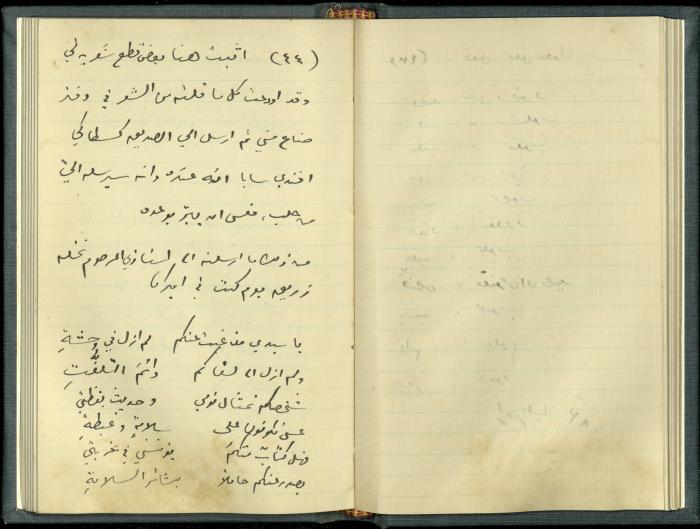 (٤٤) اثبت هنا بعض قطع شعرية لي
وقد اودعت كل ما قلته من الشعر في دفتر
ضاع مني ثم ارسل الي الصديق قسطاكي
افندي سابا انه عنده وانه سيرسله اليّ
من حلب، فعسى ان يبرّ بوعده
من ذلك ما ارسلته الى استاذي المرحوم نخله
زريق يوم كنت في اميركا
يا سيدي مذ غبت عنكم لم ازل في وحشةِ
ولم ازل الى لقاكم دائم التلفّتِ
شخصكم تمثال نومي وحديث يقظتي
عسى تكونوا على سلامةٍ وغبطةِ
فهل كتابٌ منكمُ يؤنسني في غربتي
يصدر عنكم حاملاً بشائر السلامةِ